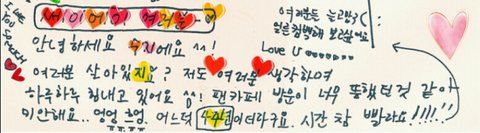 I LOVE YOU SO MUCH
세이에이 여러분 ♡
안녕하세요 수지에요 ^^!
여러분들
Love U
여러분 살아있지요? 저도 여러분 생각하며
하루하루 힘내고 있어요 ^^! 팬카페 방문이 너무 뜸했던것 같아
미안해요.. 엉엉 흐엉. 어느덧 44년이더라구요. 시간 참 빠라요!!!!!